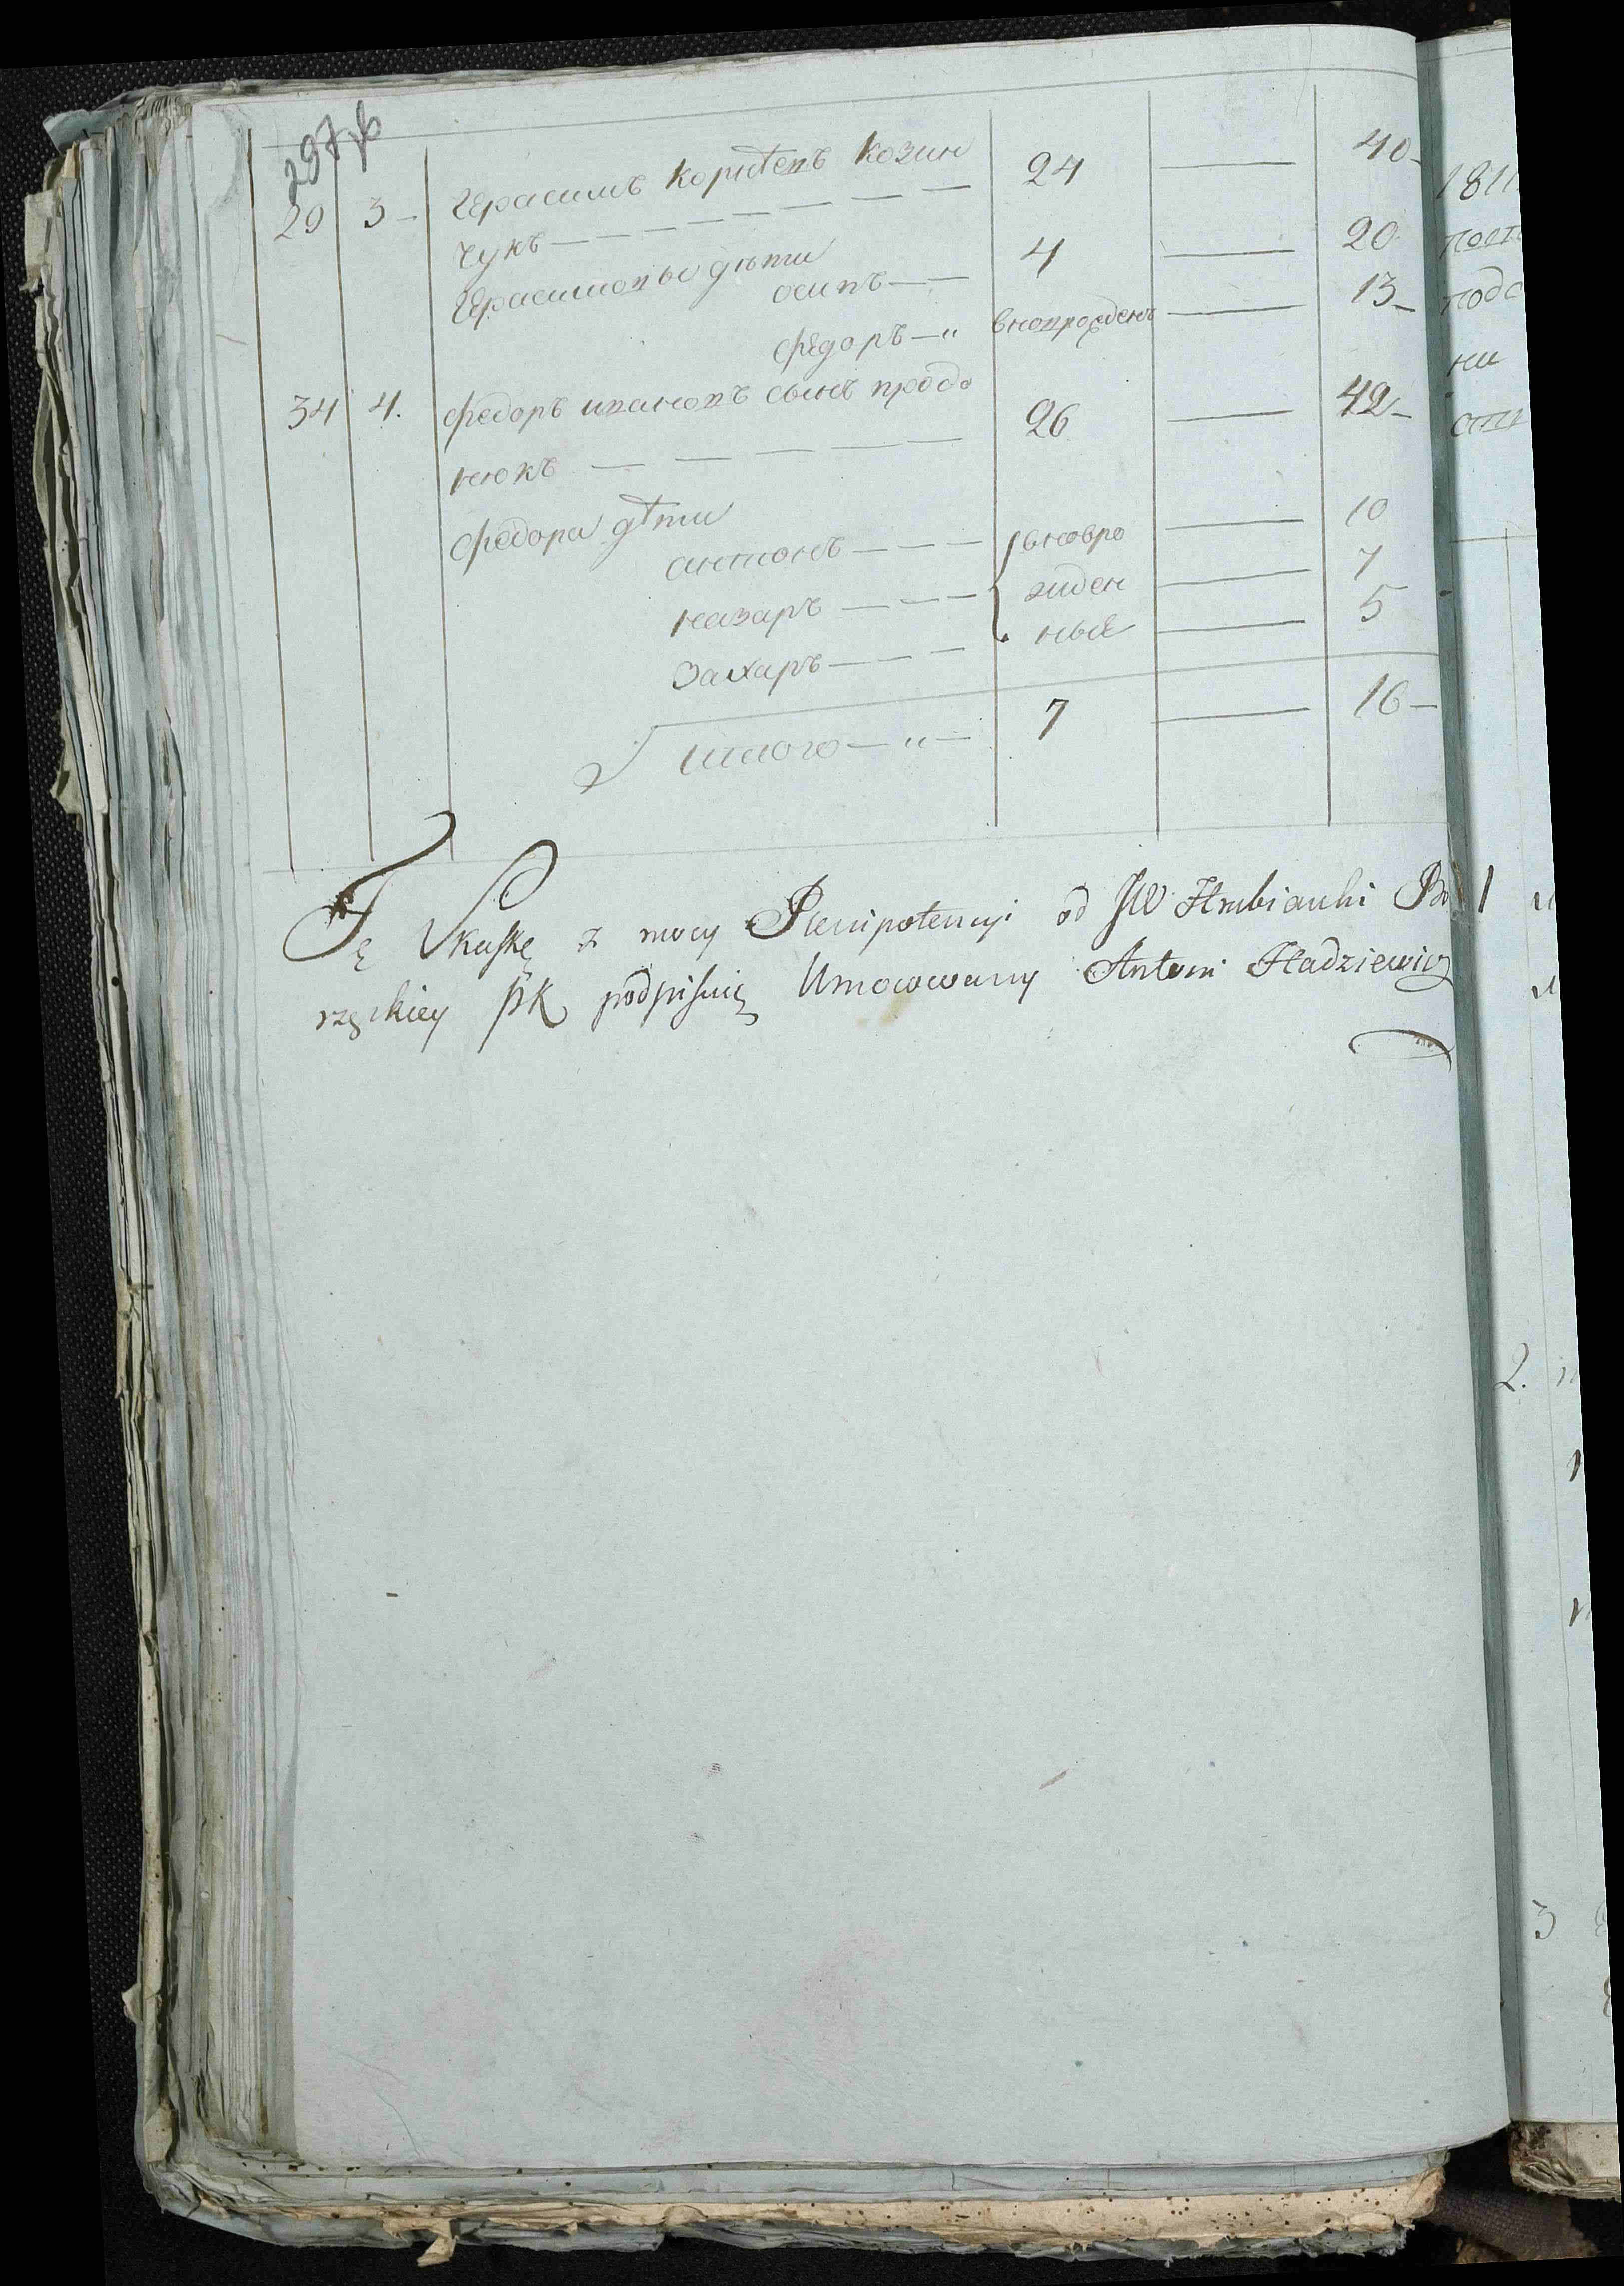 297
29 3 - Герасимъ Корнѣевъ Козин 24 — 40 -
чукъ — — — — — — —
Герасимовы дѣти
осипъ — — 4 — 20
федоръ — " вновьрожденъ — 13 -
34 4. федоръ ивановъ сынъ продо
нюкъ — — — — — 26 — 42 -
федора дѣти
антонъ — — — вновро — 10
назаръ — — — жиден — 7
захаръ — — — ные — 5
итого — " — 7 — 16 -
Tę Skaskę z mocy Plenipotencyi od JW Hrabianki Bo
rzęckiey PK podpisuię Umocowany Antoni Hadziewicz
1811
подс
ни
1
2.
3